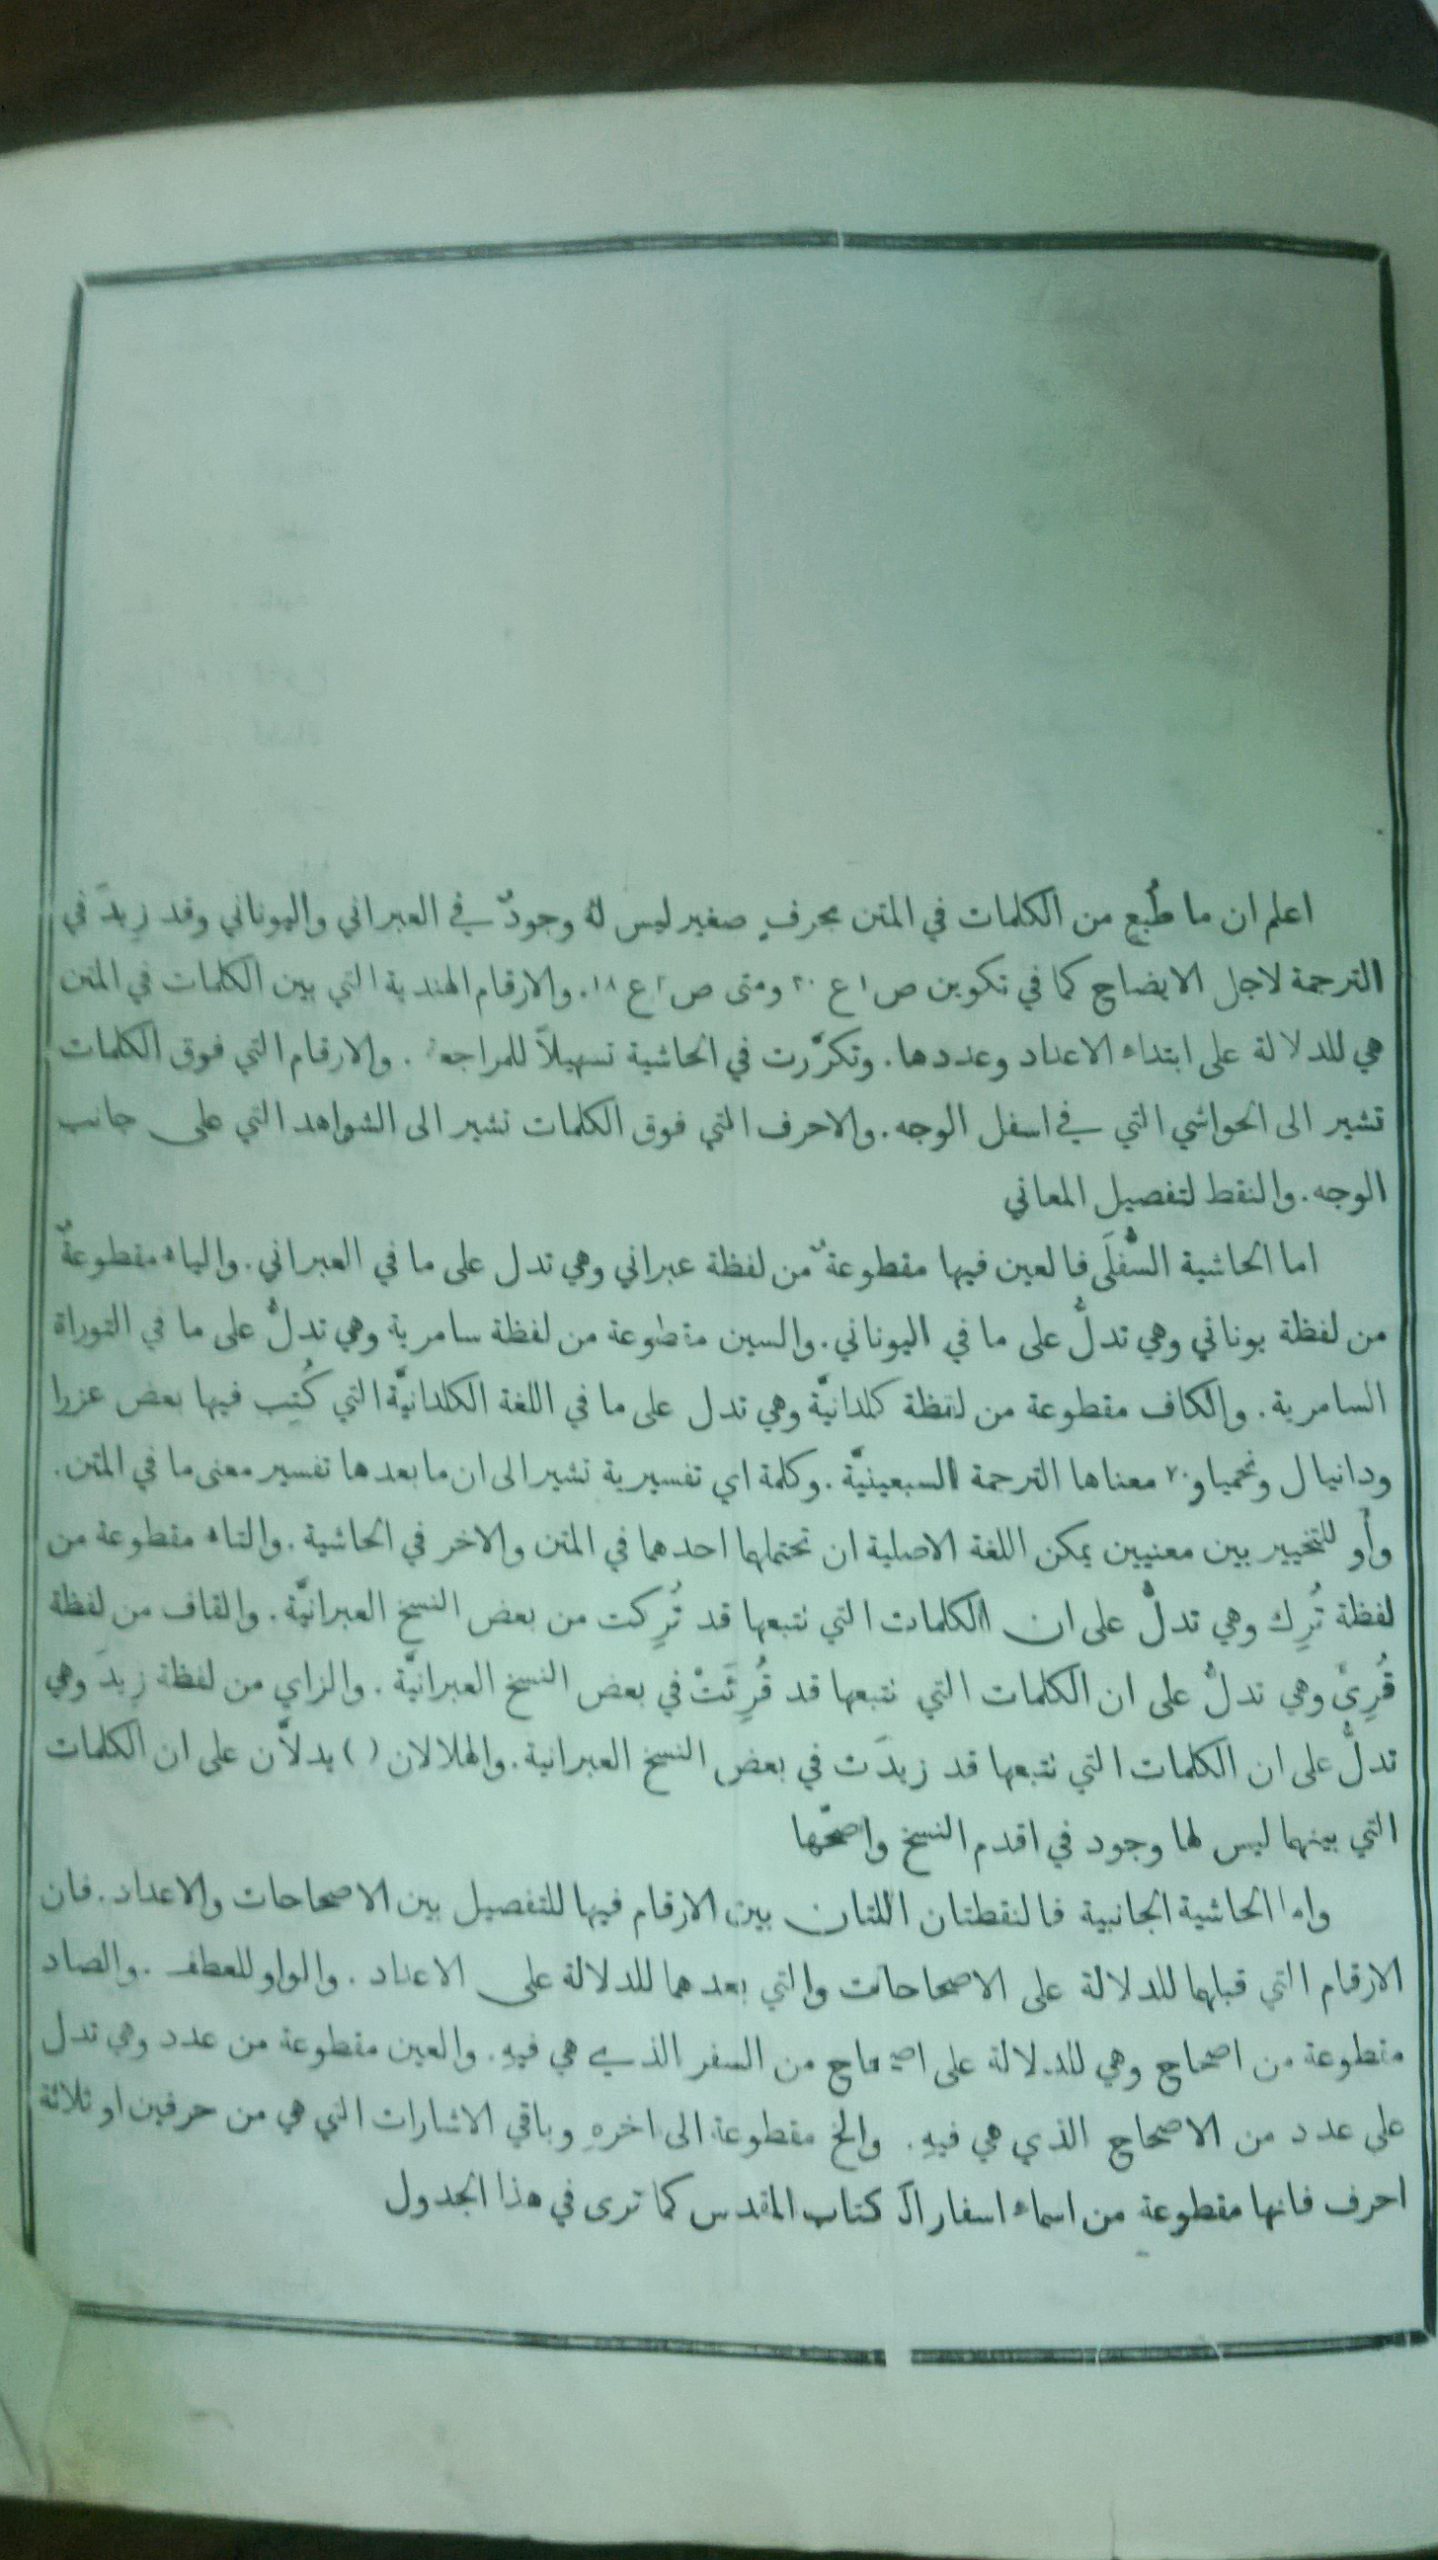 اعلم ان ما طُبع من الكلمات في المتن بحرفٍ صغير ليس لهُ وجودٌ في العبراني واليوناني وقد زِيدَ في
الترجمة لاجل الايضاح كما في تكوين ص ١ ع ٢٠ ومتى ص ٢ ع ١٨. والارقام الهندية التي بين الكلمات في المتن
هي للدلالة على ابتداء الاعداد وعددها. وتكرَّرت في الحاشية تسهيلاً للمراجعة. والارقام التي فوق الكلمات
تشير الى الحواشي التي في اسفل الوجه. والاحرف التي فوق الكلمات تشير الى الشواهد التي على جانب
الوجه. والنقط لتفصيل المعاني
اما الحاشية السُّفلَى فالعين فيها مقطوعةٌ من لفظة عبراني وهي تدل على ما في العبراني. والياء مقطوعةٌ
من لفظة يوناني وهي تدلُّ على ما في اليوناني. والسين مقطوعة من لفظة سامرية وهي تدلُّ على ما في التوراة
السامرية. والكاف مقطوعة من لفظة كلدانيَّة وهي تدل على ما في اللغة الكلدانيَّة التي كُتِب فيها بعض عزرا
ودانيال ونحميا و٧٠ معناها الترجمة السبعينيَّة. وكلمة اي تفسيرية تشير الى ان ما بعدها تفسير معنى ما في المتن.
وأو للتخيير بين معنيين يمكن اللغة الاصلية ان تحتملها احدهما في المتن والاخر في الحاشية. والتاء مقطوعة من
لفظة تُرِك وهي تدلُّ على ان الكلمات التي نتبعها قد تُرِكت من بعض النسخ العبرانيَّة. والقاف من لفظة
قُرِئَ وهي تدلُّ على ان الكلمات التي نتبعها قد قُرِئَتْ في بعض النسخ العبرانيَّة. والزاي من لفظة زِيدَ وهي
تدلُّ على ان الكلمات التي نتبعها قد زيدَت في بعض النسخ العبرانية. والهلالان ( ) يدلاَّن على ان الكلمات
التي بينهما ليس لها وجود في اقدم النسخ واصحّها
واما الحاشية الجانبية فالنقطتان اللتان بين الارقام فيها للتفصيل بين الاصحاحات والاعداد. فان
الارقام التي قبلهما للدلالة على الاصحاحات والتي بعدهما للدلالة على الاعداد. والواو للعطف. والصاد
مقطوعة من اصحاح وهي للدلالة على اصحاح من السفر الذي هي فيهِ. والعين مقطوعة من عدد وهي تدل
على عدد من الاصحاح الذي هي فيهِ. والخ مقطوعة الى اخرهِ وباقي الاشارات التي هي من حرفين او ثلاثة
احرف فانها مقطوعة من اسماء اسفار الكتاب المقدس كما ترى في هذا الجدول